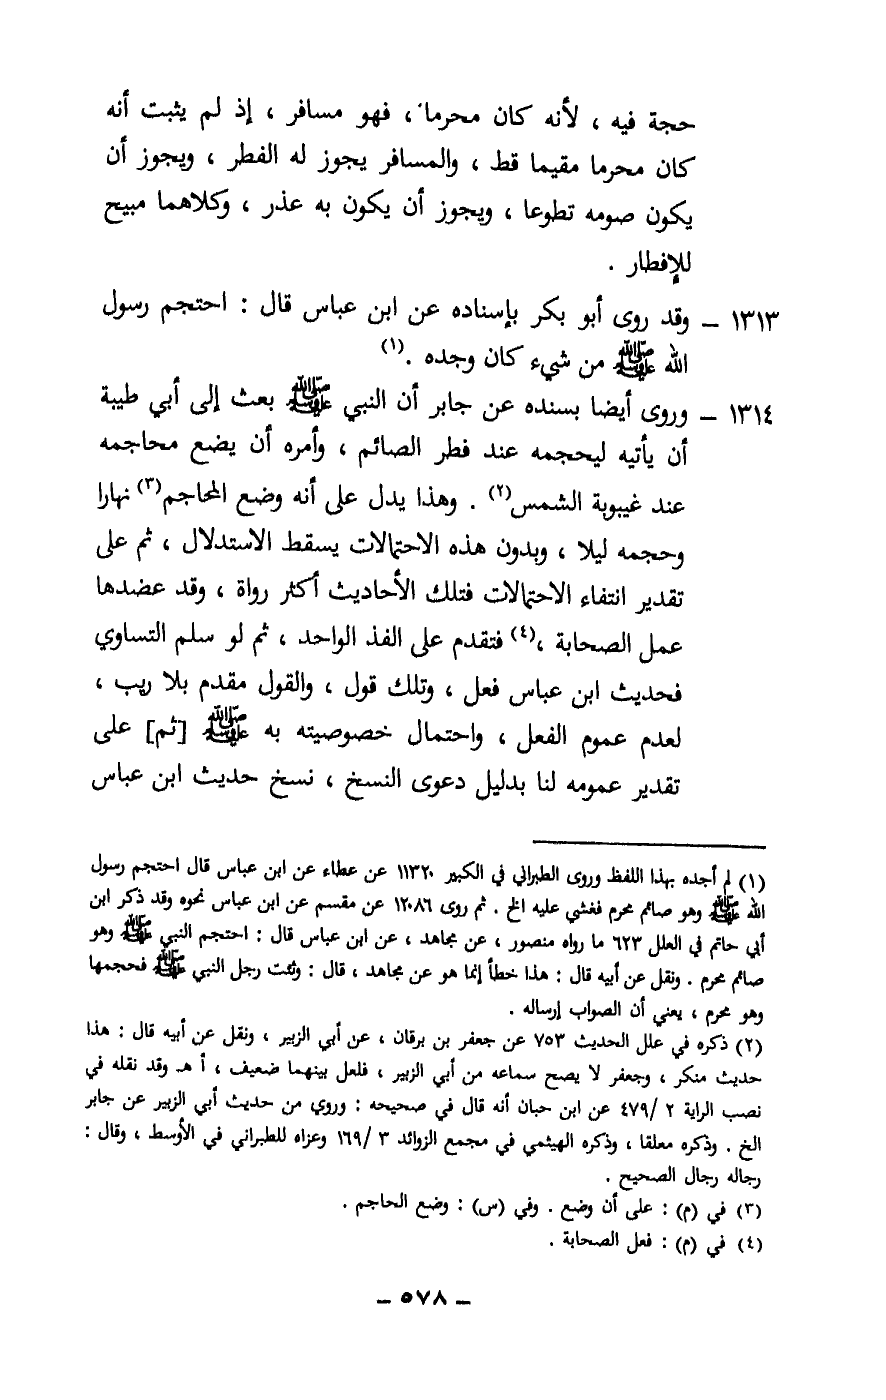 حجة فيه ، لأنه كان محرما ، فهو مسافر ، إذ لم يثبت أنه
كان محرما مقيما قط ، والمسافر يجوز له الفطر ، ويجوز أن
يكون صومه تطوعا ، ويجوز أن يكون به عذر ، وكلاهما مبيح
للإفطار .
١٣١٣ – وقد روى أبو بكر بإسناده عن ابن عباس قال : احتجم رسول
الله ﷺ من شيء كان وجده .(١)
١٣١٤ – وروى أيضا بسنده عن جابر أن النبي ﷺ بعث إلى أبي طيبة
أن يأتيه ليحجمه عند فطر الصائم ، وأمره أن يضع محاجمه
عند غيبوبة الشمس(٢) . وهذا يدل على أنه وضع المحاجم(٣) نهارا
وحجمه ليلا ، وبدون هذه الاحتمالات يسقط الاستدلال ، ثم على
تقدير انتفاء الاحتمالات فتلك الأحاديث أكثر رواة ، وقد عضدها
عمل الصحابة ،(٤) فتقدم على الفذ الواحد ، ثم لو سلم التساوي
فحديث ابن عباس فعل ، وتلك قول ، والقول مقدم بلا ريب ،
لعدم عموم الفعل ، واحتمال خصوصيته به ﷺ [ثم] على
تقدير عمومه لنا بدليل دعوى النسخ ، نسخ حديث ابن عباس
(١) لم أجده بهذا اللفظ وروى الطبراني في الكبير ١١٣٢٠ عن عطاء عن ابن عباس قال احتجم رسول
الله ﷺ وهو صائم محرم فغشي عليه الخ . ثم روى ١٢٠٨٦ عن مقسم عن ابن عباس نحوه وقد ذكر ابن
أبي حاتم في العلل ٦٢٣ ما رواه منصور ، عن مجاهد ، عن ابن عباس قال : احتجم النبي ﷺ وهو
صائم محرم . ونقل عن أبيه قال : هذا خطأ إنما هو عن مجاهد ، قال : وثئت رجل النبي ﷺ فحجمها
وهو محرم ، يعني أن الصواب إرساله .
(٢) ذكره في علل الحديث ٧٥٣ عن جعفر بن برقان ، عن أبي الزبير ، ونقل عن أبيه قال : هذا
حديث منكر ، وجعفر لا يصح سماعه من أبي الزبير ، فلعل بينهما ضعيف ، أ هـ وقد نقله في
نصب الراية ٢ /٤٧٩ عن ابن حبان أنه قال في صحيحه : وروي من حديث أبي الزبير عن جابر
الخ . وذكره معلقا ، وذكره الهيثمي في مجمع الزوائد ٣ /١٦٩ وعزاه للطبراني في الأوسط ، وقال :
رجاله رجال الصحيح .
(٣) في (م) : على أن وضع . وفي (س) : وضع الحاجم .
(٤) في (م) : فعل الصحابة .
– ٥٧٨ –